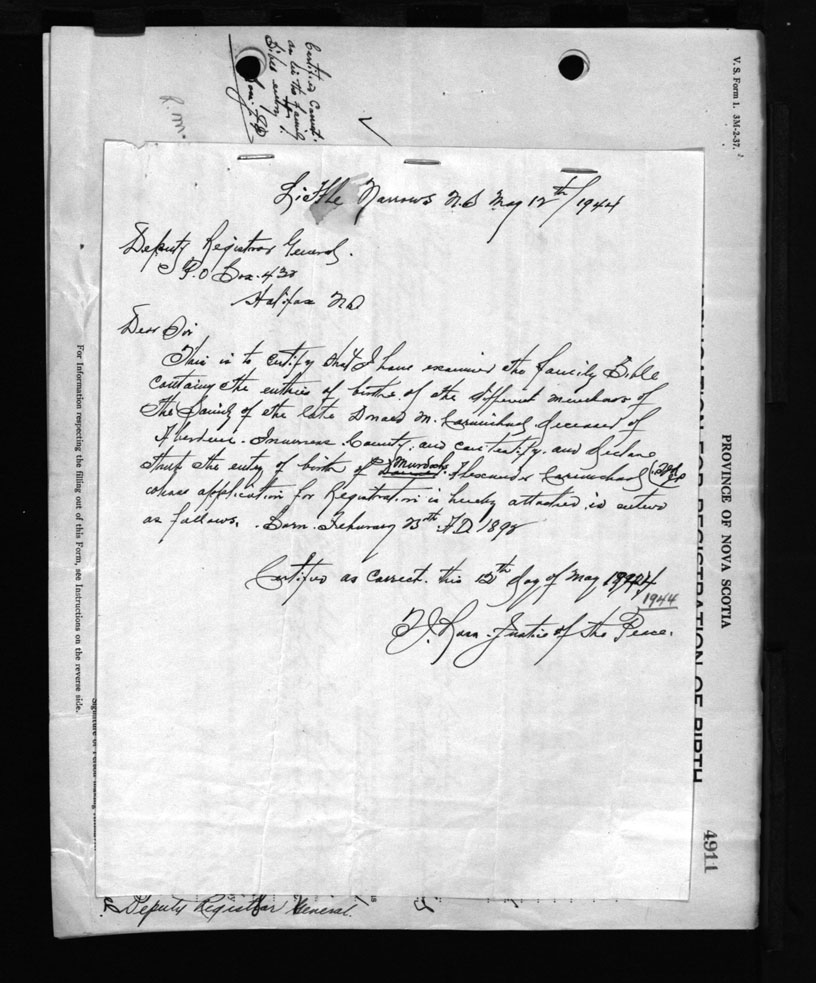 Certified Correct.
as in the family
Bible entry.
R. M.
V. S. Form 1. 3M-2-37.
Little Narrows N.S May 12th/1944
Deputy Registrar General.
P.O Box. 430
Halifax N.S
Dear Sir
This is to certify that I have examined the Family Bible
containg the entries of births of the different members of
the Family of the late Donald M. Carmichael deceased of
Aberdeen. Inverness. County, and can testify, and declare
that the entry of birth of Murdoch. Alexander Carmichael
whose application for Registration is hereby attached is entered
as follows. Born. February 23th A.D. 1898
Certified as Correct. this 12th day of May 1944
1944
J. Ross. Justice of the Peace.
For information respecting the filling out of this Form, see Instructions on the reverse side.
PROVINCE OF NOVA SCOTIA
APPLICATION FOR REGISTRATION OF BIRTH
4911
Deputy Registrar General.